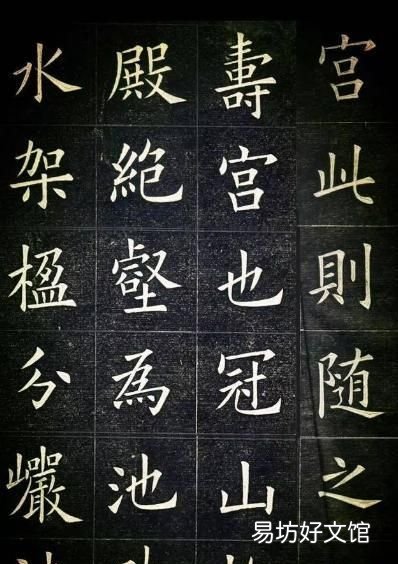 宫此則随之
壽宫也冠山
殿絶壑為池
水架楹分巖
易坊好文馆